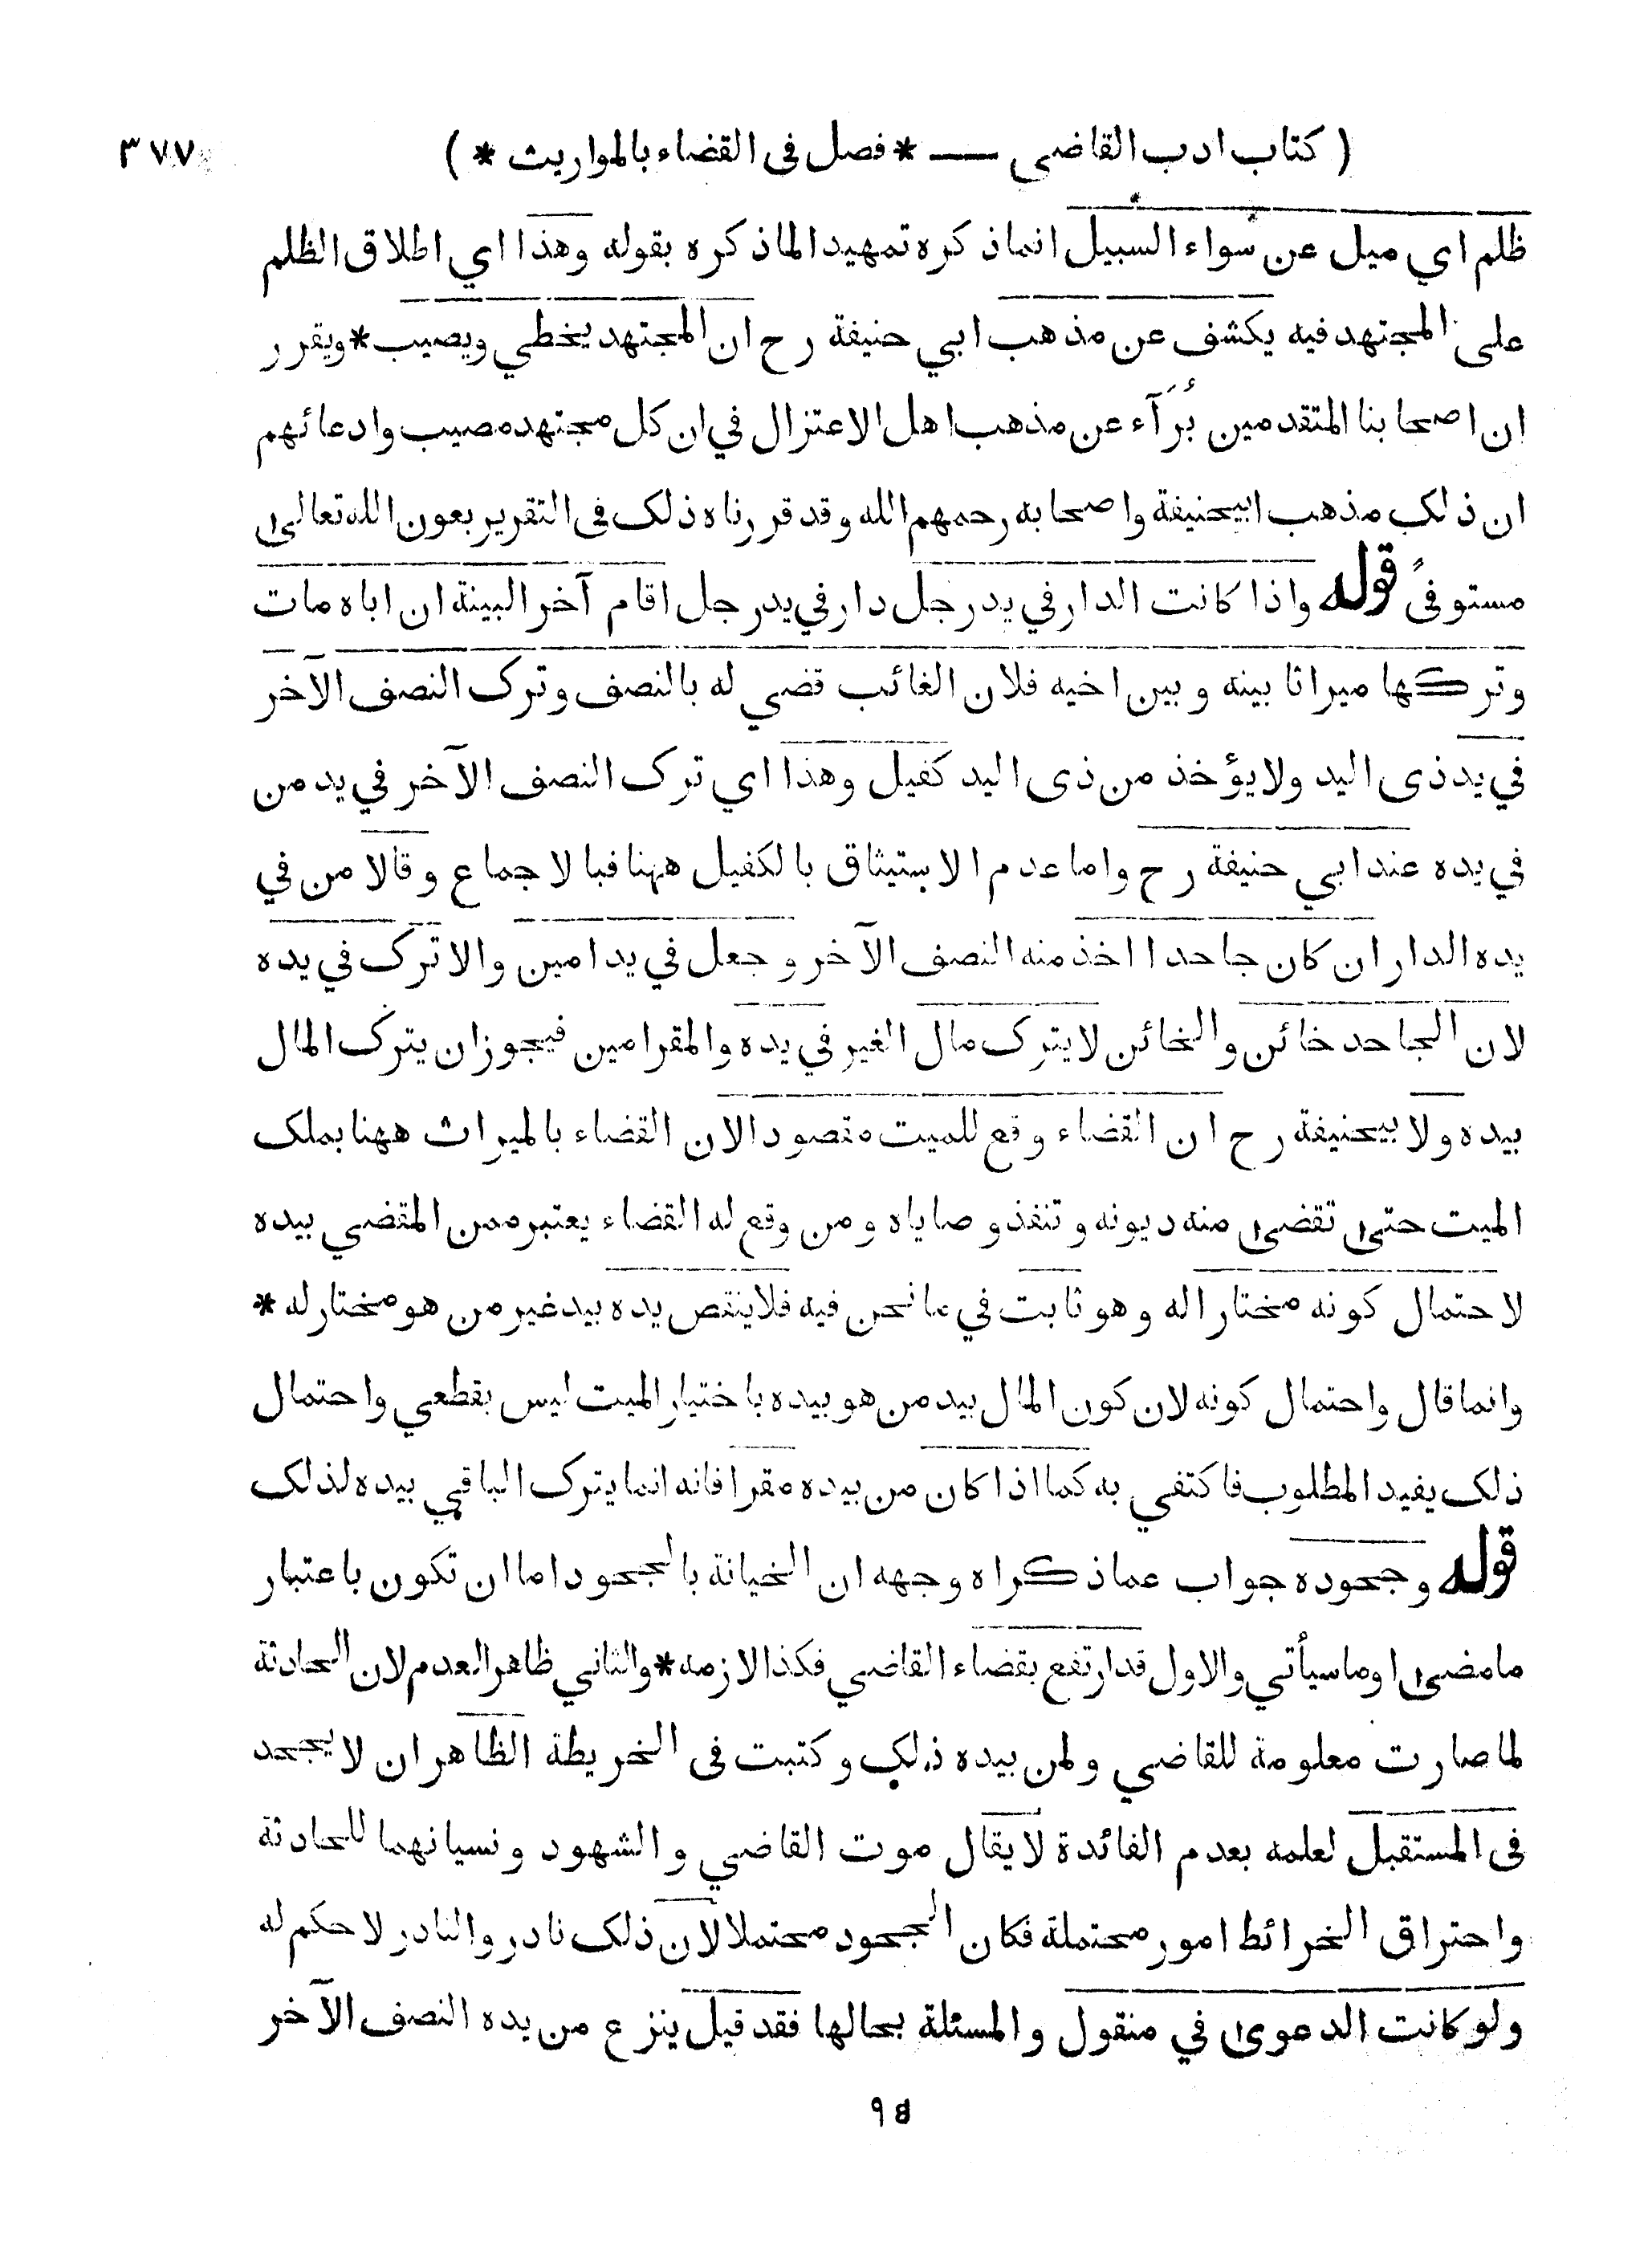 ( كتاب ادب القاضي — * فصل فى القضاء بالمواريث * ) ٣٧٧
ظلم اي ميل عن سواء السبيل انما ذكره تمهيدا لما ذكره بقوله وهذا اي اطلاق الظلم
على المجتهد فيه يكشف عن مذهب ابي حنيفة رح ان المجتهد يخطي ويصيب * ويقرر
ان اصحابنا المتقدمين بُرَآء عن مذهب اهل الاعتزال في ان كل مجتهد مصيب وادعائهم
ان ذلك مذهب ابيحنيفة واصحابه رحمهم الله وقد قررناه ذلك فى التقرير بعون الله تعالى
مستوفىً قوله واذا كانت الدار في يد رجل دار في يد رجل اقام آخر البينة ان اباه مات
وتركها ميراثا بينه وبين اخيه فلان الغائب قضي له بالنصف وترك النصف الآخر
في يد ذى اليد ولا يؤخذ من ذى اليد كفيل وهذا اي ترك النصف الآخر في يد من
في يده عند ابي حنيفة رح واما عدم الاستيثاق بالكفيل ههنا فبالاجماع وقالا من في
يده الدار ان كان جاحدا اخذ منه النصف الآخر وجعل في يد امين والا ترك في يده
لان الجاحد خائن والخائن لا يترك مال الغير في يده والمقر امين فيجوز ان يترك المال
بيده ولابيحنيفة رح ان القضاء وقع للميت مقصودا لان القضاء بالميراث ههنا بملك
الميت حتى تقضى منه ديونه وتنفذ وصاياه ومن وقع له القضاء يعتبر ممن المقضي بيده
لاحتمال كونه مختارا له وهو ثابت في ما نحن فيه فلا ينتقص يده بيد غير من هو مختار له *
وانما قال واحتمال كونه لان كون المال بيد من هو بيده باختيار الميت ليس بقطعي واحتمال
ذلك يفيد المطلوب فاكتفي به كما اذا كان من بيده مقرا فانه انما يترك الباقي بيده لذلك
قوله وجحوده جواب عما ذكراه وجهه ان الخيانة بالجحود اما ان تكون باعتبار
ما مضى او ما سيأتي والاول قد ارتفع بقضاء القاضي فكذا لازمه * والثاني ظاهر العدم لان الحادثة
لما صارت معلومة للقاضي ولمن بيده ذلك وكتبت فى الخريطة الظاهر ان لا يجحد
فى المستقبل لعلمه بعدم الفائدة لا يقال موت القاضي والشهود ونسيانهما للحادثة
واحتراق الخرائط امور محتملة فكان الجحود محتملا لان ذلك نادر والنادر لا حكم له
ولو كانت الدعوى في منقول والمسئلة بحالها فقد قيل ينزع من يده النصف الآخر